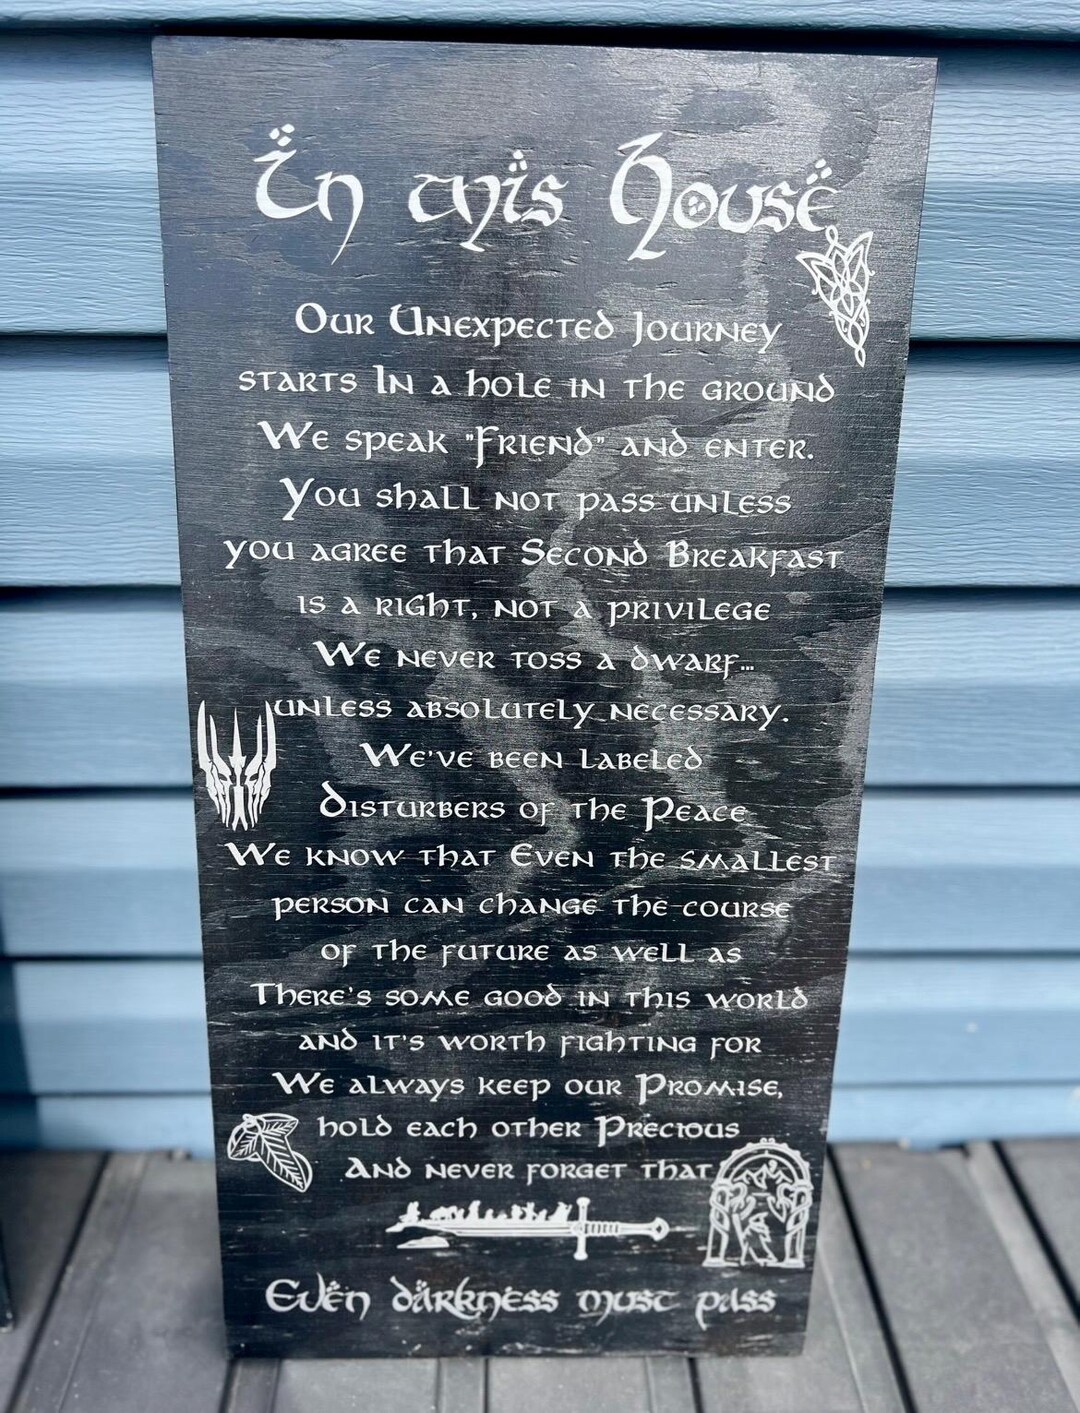 In this House
Our Unexpected Journey
starts In a hole in the ground
We speak "Friend" and enter.
You shall not pass unless
you agree that Second Breakfast
is a right, not a privilege
We never toss a dwarf...
unless absolutely necessary.
We've been Labeled
Disturbers of the Peace
We know that Even the smallest
person can change the course
of the future as well as
There's some good in this world
and it's worth fighting for
We always keep our Promise,
hold each other Precious
And never forget that
Even darkness must pass